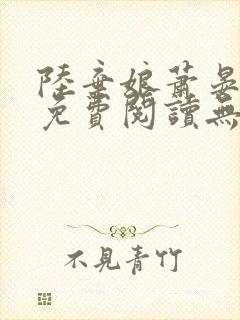 陸棄娘蕭晏
免費閱讀無
不見青竹